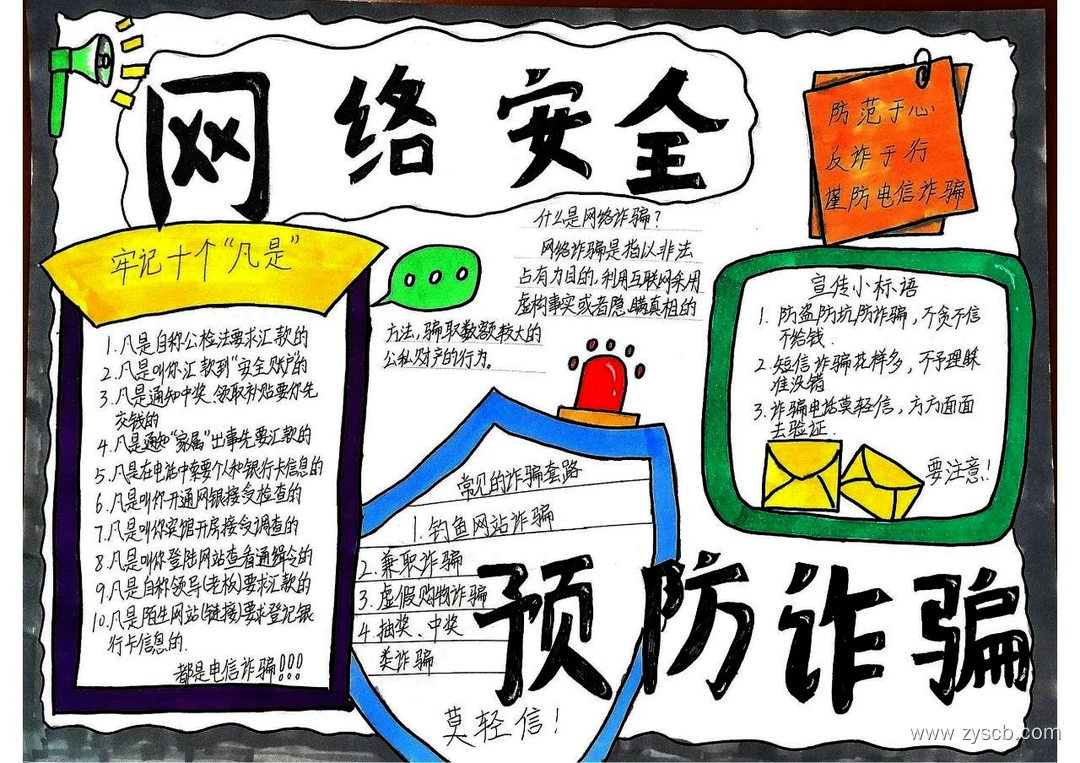 网络安全
防范于心
反诈于行
谨防电信诈骗
牢记十个“凡是”
1.凡是自称公检法要求汇款的
2.凡是叫你汇款到“安全账户”的
3.凡是通知中奖、领取补贴要你先
交钱的
4.凡是通知“家属”出事先要汇款的
5.凡是在电话中索要个人和银行卡信息的
6.凡是叫你开通网银接受检查的
7.凡是叫你宾馆开房接受调查的
8.凡是叫你登陆网站查看通缉令的
9.凡是自称领导(老板)要求汇款的
10.凡是陌生网站(链接)要求登记银
行卡信息的.
都是电信诈骗!!!
什么是网络诈骗?
网络诈骗是指以非法
占有为目的,利用互联网采用
虚构事实或者隐瞒真相的
方法,骗取数额较大的
公私财产的行为。
宣传小标语
1.防盗防坑防诈骗,不贪不信
不给钱.
2.短信诈骗花样多,不予理睬
准没错
3.诈骗电话莫轻信,方方面面
去验证.
要注意!
常见的诈骗套路
1.钓鱼网站诈骗
2.兼取诈骗
3.虚假购物诈骗
4.抽奖、中奖
类诈骗
莫轻信!
预防诈骗
www.zyscb.com